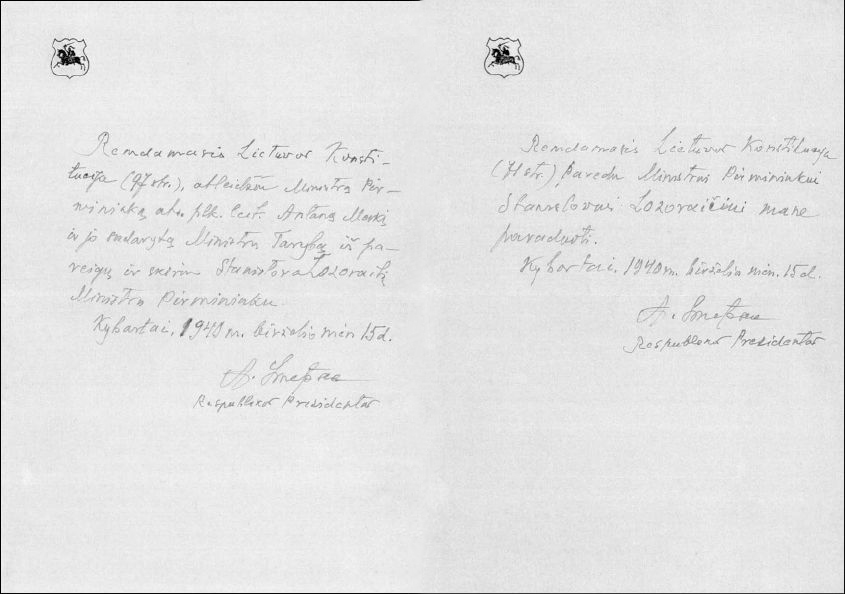 Remdamasis Lietuvos Konsti-
tucija (97 str.), atleidžiu Ministrą Pir-
mininką ats. plk. leit. Antaną Merkį
ir jo sudarytą Ministrų Tarybą iš pa-
reigų ir skiriu Stanislovą Lozoraitį
Ministru Pirmininku.
Kybartai, 1940 m. birželio mėn. 15 d.
A. Smetona
Respublikos Prezidentas
Remdamasis Lietuvos Konstitucija
(71 str.), pavedu Ministrui Pirmininkui
Stanislovui Lozoraičiui mane
pavaduoti.
Kybartai, 1940 m. birželio mėn. 15 d.
A. Smetona
Respublikos Prezidentas